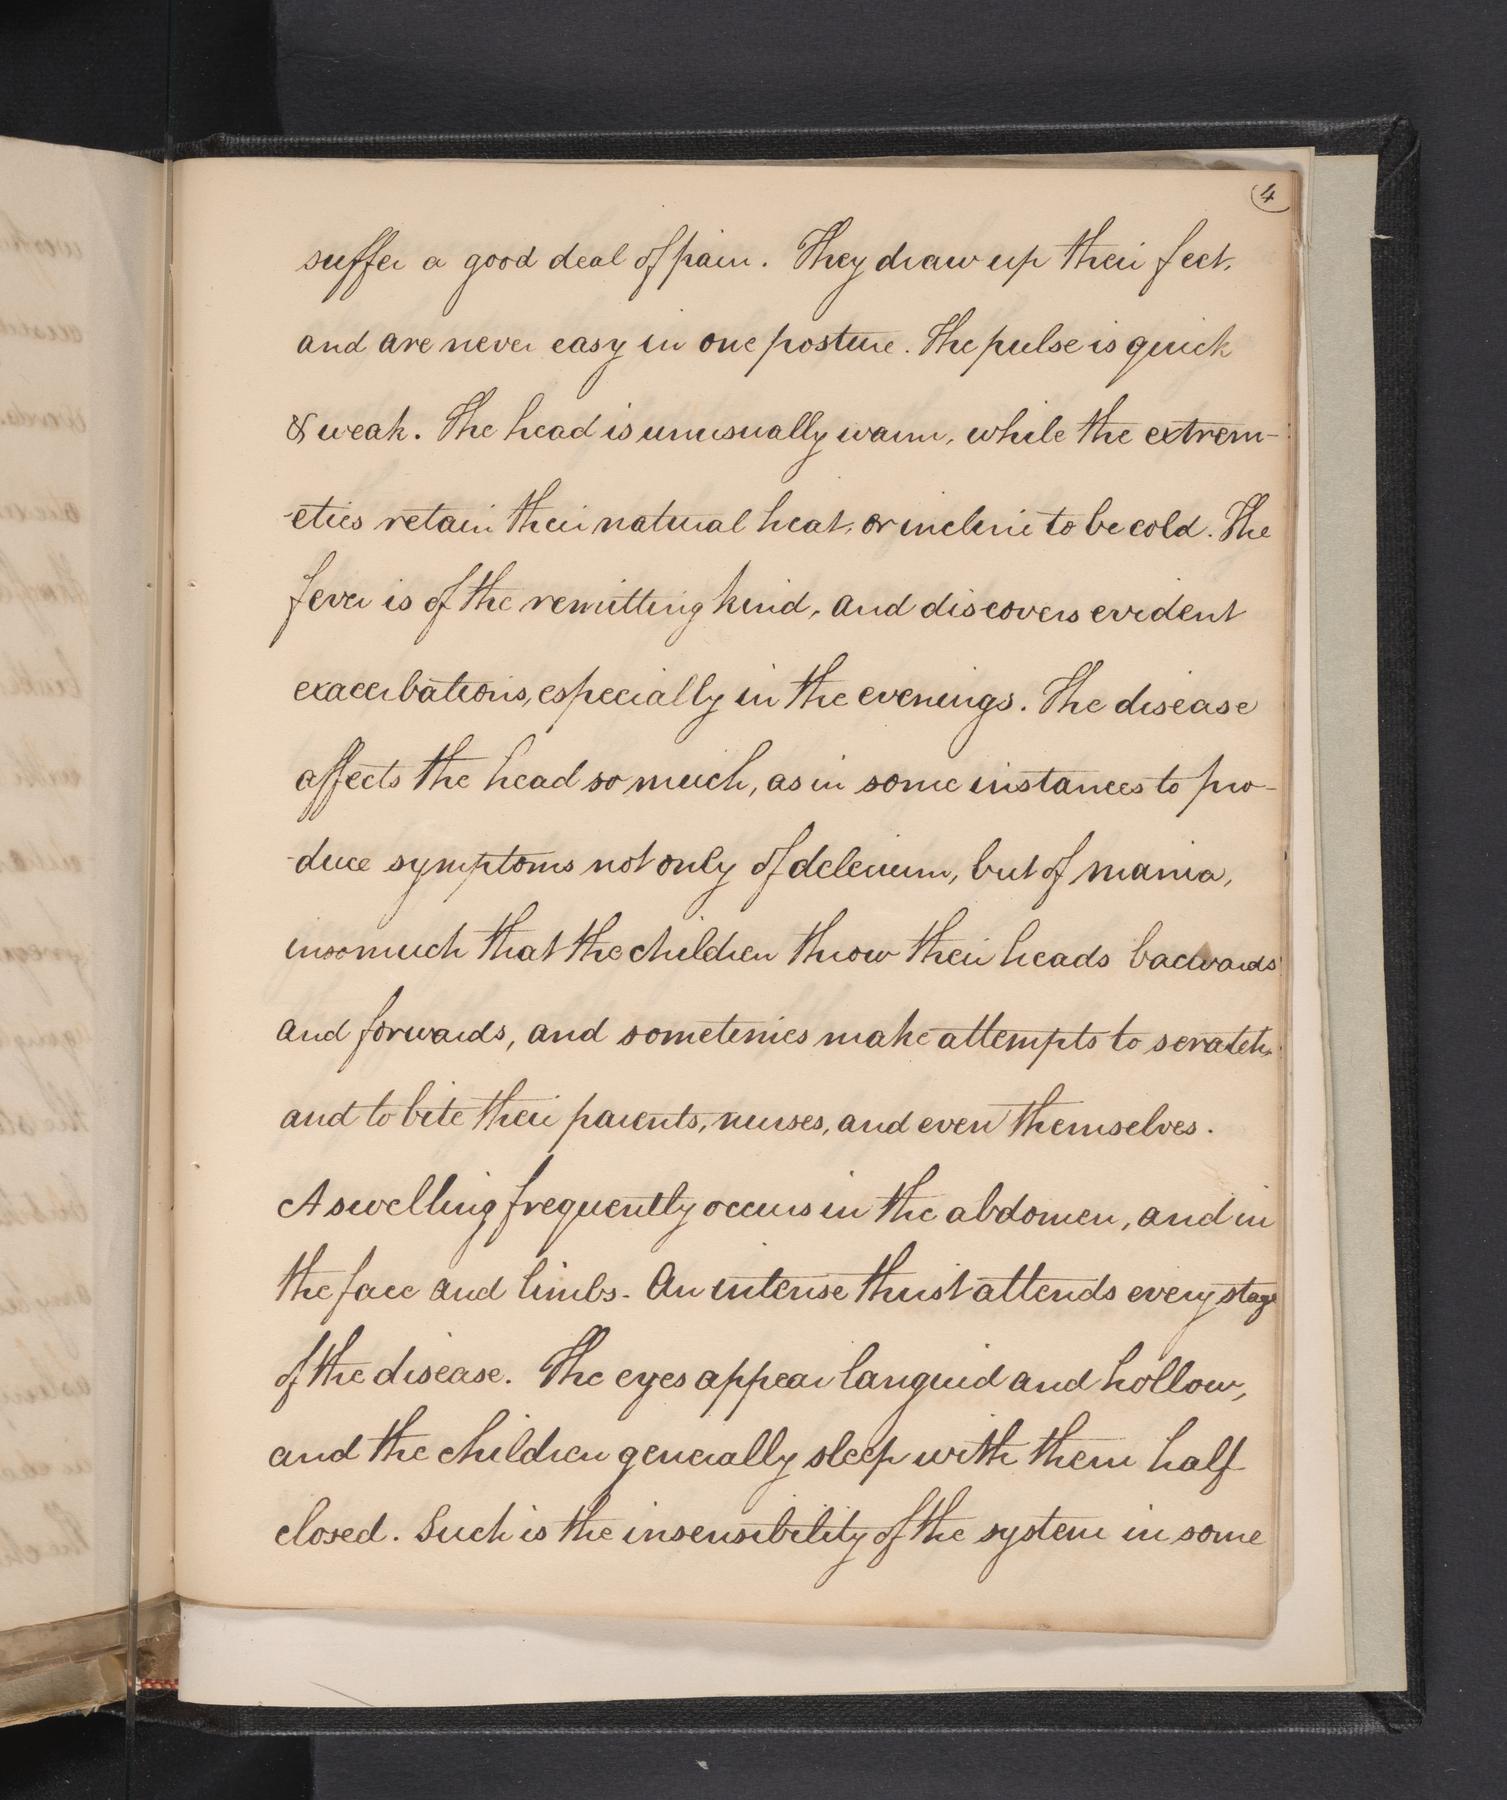 4
suffer a good deal of pain. They draw up their feet,
and are never easy in one posture. The pulse is quick
& weak. The head is unusually warm, while the extrem-
-eties retain their natural heat, or incline to be cold. The
fever is of the remitting kind, and discovers evident
exacerbations, especially in the evenings. The disease
affects the head so much, as in some instances to pro-
-duce symptoms not only of delerium, but of mania,
insomuch that the children throw their heads bacwards
and forwards, and sometimes make attempts to scratch,
and to bite their parents, nurses, and even themselves.
A swelling frequently occurs in the abdomen, and in
the face and limbs. An intense thirst attends every stage
of the disease. The eyes appear languid and hollow,
and the children generally sleep with them half
closed. Such is the insensibility of the system in some